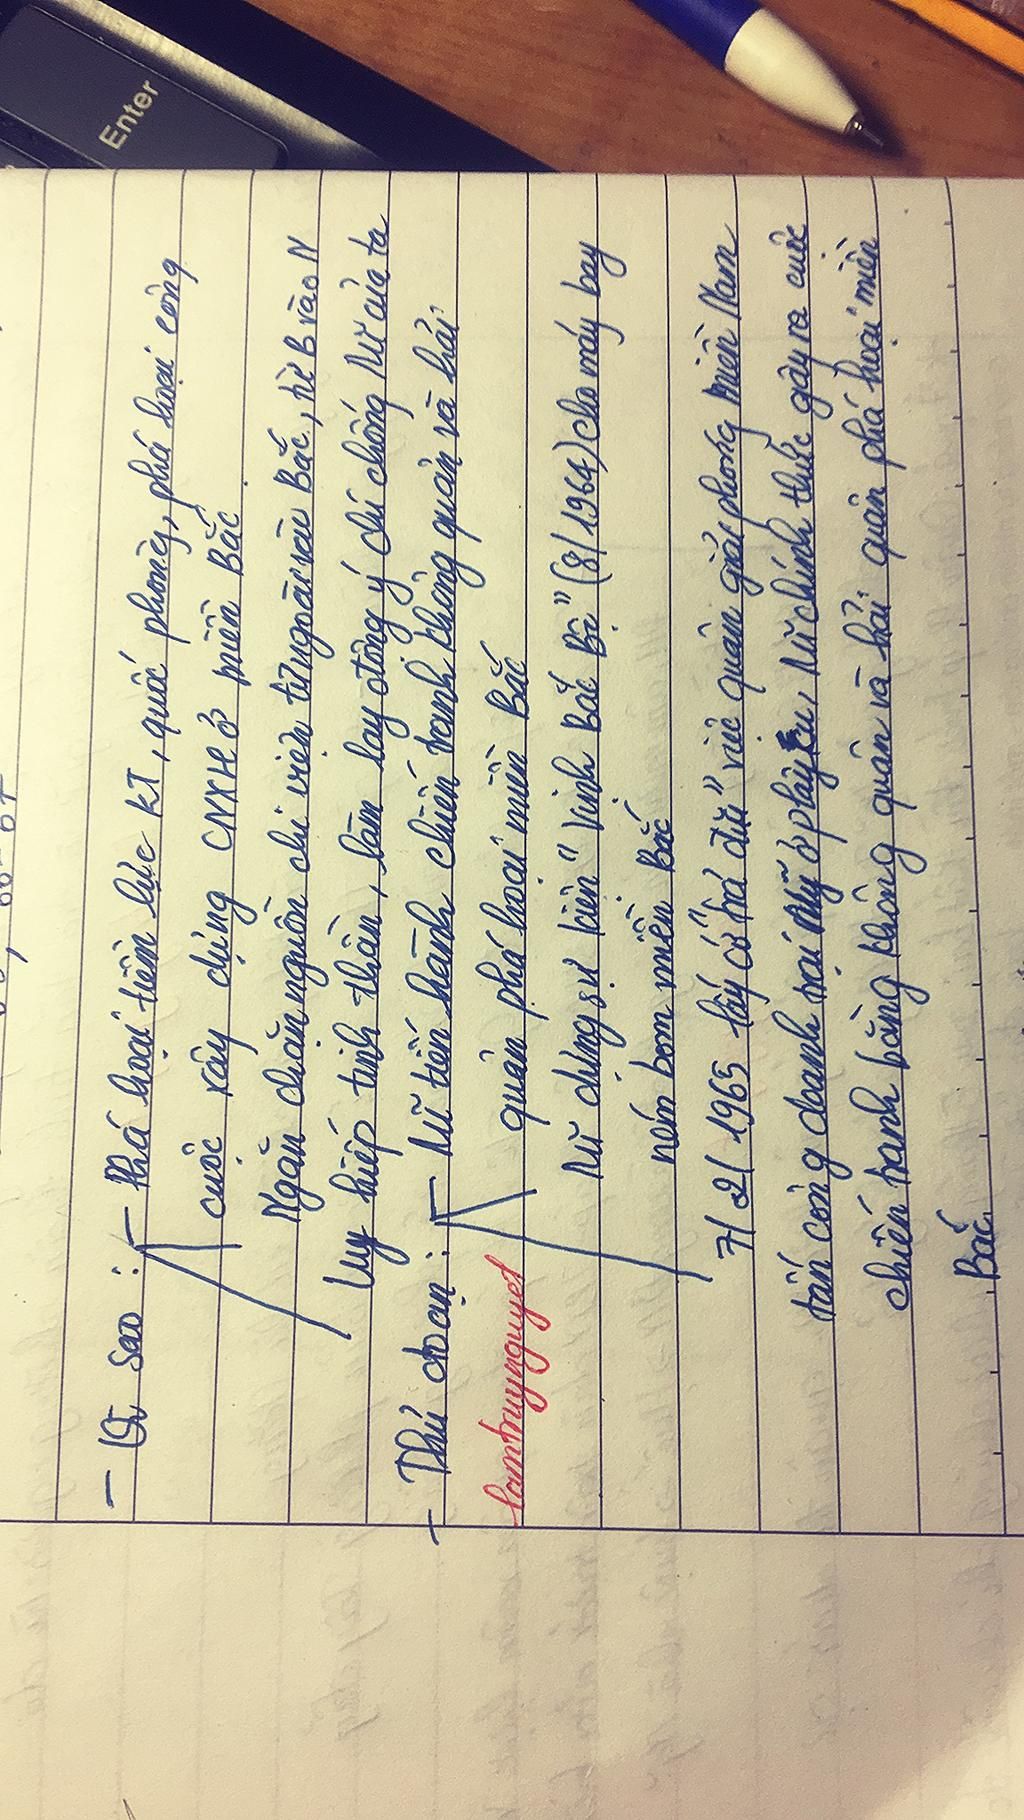 - Vì sao : - Phá hoại tiềm lực KT, quốc phòng, phá hoại công
cuộc xây dựng CNXH ở miền Bắc
Ngăn chặn nguồn chi viện từ ngoài vào Bắc, từ B vào N
Uy hiếp tinh thần, làm lay động ý chí chống Mĩ của ta
- Thủ đoạn : - Mĩ tiến hành chiến tranh không quân và hải
quân phá hoại miền Bắc
lamtruynguyet
Mĩ dựng sự kiện "Vịnh Bắc Bộ" (8/1964) cho máy bay
ném bom miền Bắc
7/2/1965 lấy cớ "trả đũa" việc quân giải phong miền Nam
tấn công doanh trại Mỹ ở Plâyku, Mĩ chính thức gây ra cuộc
chiến tranh bằng không quân và hải quân phá hoại miền
Bắc
Enter